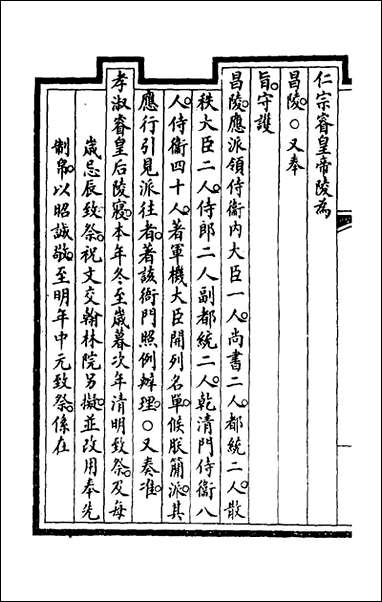 仁宗睿皇帝陵為
昌陵。○又奉
旨。守護
昌陵。應派領侍衞內大臣一人。尚書二人。都統二人。散
秩大臣二人。侍郎二人副都統二人。乾清門侍衞八
人。侍衞四十人。著軍機大臣開列名單。候朕簡派。其
應行引見派往者。著該衙門照例辦理。○又奏准。
孝淑睿皇后陵寢。本年冬至歲暮次年清明致祭。及每
歲忌辰致祭。祝文交翰林院另擬。並改用奉先
制帛。以昭誠敬。至明年中元致祭。係在